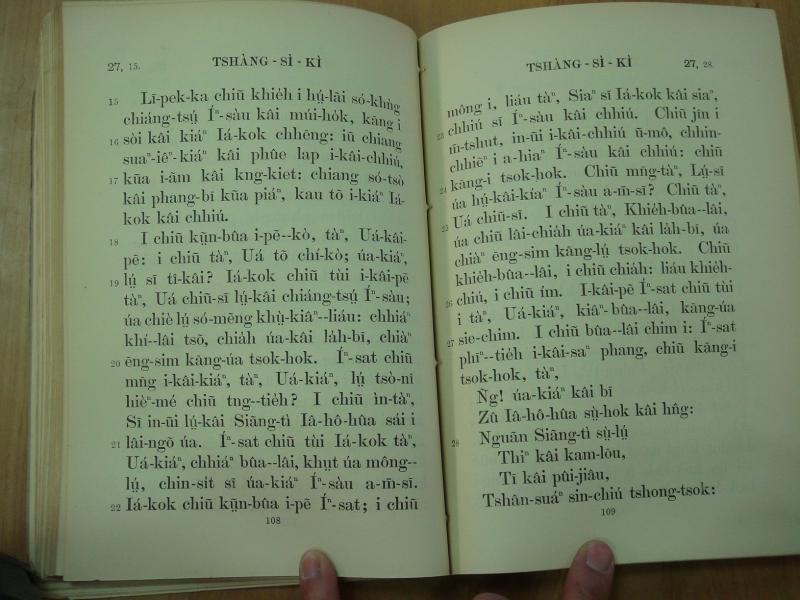 27, 15. TSHÀNG - SÌ - KÌ
15 Lī-pek-ka chiū khiéh i hṳ̍-lāi só-khǹg
chiáng-tsṳ́ Íⁿ-sàu kâi múi-hók, kāng i
16 sòi kâi kiáⁿ Iá-kok chhēng: iū chiang
suaⁿ-iêⁿ-kiáⁿ kâi phûe lap i-kâi-chhiú,
17 kūa i-ām kâi kng-kiet: chiang só-tsò
kâi phang-bī kūa piáⁿ, kau tō i-kiáⁿ Iá-
kok kâi chhiú.
18 I chiū kṳ̄n-bûa i-pē--kò, tàⁿ, Uá-kâi-
pē: i chiū tàⁿ, Uá tō chí-kò; úa-kiáⁿ,
19 lṳ́ sī tî-kâi? Iá-kok chiū tùi i-kâi-pē
tàⁿ, Uá chiū-sī lṳ́-kâi chiáng-tsṳ́ Íⁿ-sàu;
úa chiè lṳ́ só-mēng khṳ̀-kiâⁿ--liáu: chhiáⁿ
khí--lâi tsō, chiáh úa-kâi láh-bī, chiàⁿ
20 ēng-sim kāng-úa tsok-hok. Íⁿ-sat chiū
mn̄g i-kâi-kiáⁿ, tàⁿ, Uá-kiáⁿ, lṳ́ tsò-nî
hièⁿ-mé chiū tng--tiéh? I chiū ìn-tàⁿ,
Sī in-ūi lṳ́-kâi Siāng-tì Iâ-hô-hûa sái i
21 lâi-ngō úa. Íⁿ-sat chiū tùi Iá-kok tàⁿ,
Uá-kiáⁿ, chhiáⁿ bûa--lâi, khṳt úa mông--
lṳ́, chin-sit sī úa-kiáⁿ Íⁿ-sàu a-m̄-sī.
22 Iá-kok chiū kṳ̄n-bûa i-pē Íⁿ-sat; i chiū
108
TSHÀNG - SÌ - KÌ 27, 28.
mông i, liáu tàⁿ, Siaⁿ sī Iá-kok kâi siaⁿ,
chhiú sī Íⁿ-sàu kâi chhiú. Chiū jīn i
23 m̄-tshut, in-ūi i-kâi-chhiú ū-mô, chhin-
chhiēⁿ i a-hiaⁿ Íⁿ-sàu kâi chhiú: chiū
24 kāng-i tsok-hok. Chiū mn̄g-tàⁿ, Lṳ́-sī
úa hṳ́-kâi-kíaⁿ Íⁿ-sàu a-m̄-sī? Chiū tàⁿ,
25 Uá chiū-sī. I chiū tàⁿ, Khiéh-bûa--lâi,
úa chiū lâi-chiáh úa-kiáⁿ kâi láh-bī, úa
chiàⁿ ēng-sim kāng-lṳ́ tsok-hok. Chiū
khiéh-bûa--lâi, i chiū chiáh: liáu khiéh-
26 chiú, i chiū ím. I-kâi-pē Íⁿ-sat chiū tùi
i tàⁿ, Uá-kiáⁿ, kiâⁿ-bûa--lâi, kāng-úa
27 sie-chim. I chiū bûa--lâi chim i: Íⁿ-sat
phīⁿ--tiéh i-kâi-saⁿ phang, chiū kāng-i
tsok-hok, tàⁿ,
Ñg! úa-kiáⁿ kâi bī
Zû Iâ-hô-hûa sṳ̀-hok kâi hn̂g:
28 Nguān Siāng-tì sṳ̀-lṳ́
Thiⁿ kâi kam-lōu,
Tī kâi pûi-jiâu,
Tshân-suáⁿ sin-chiú tshong-tsok:
109